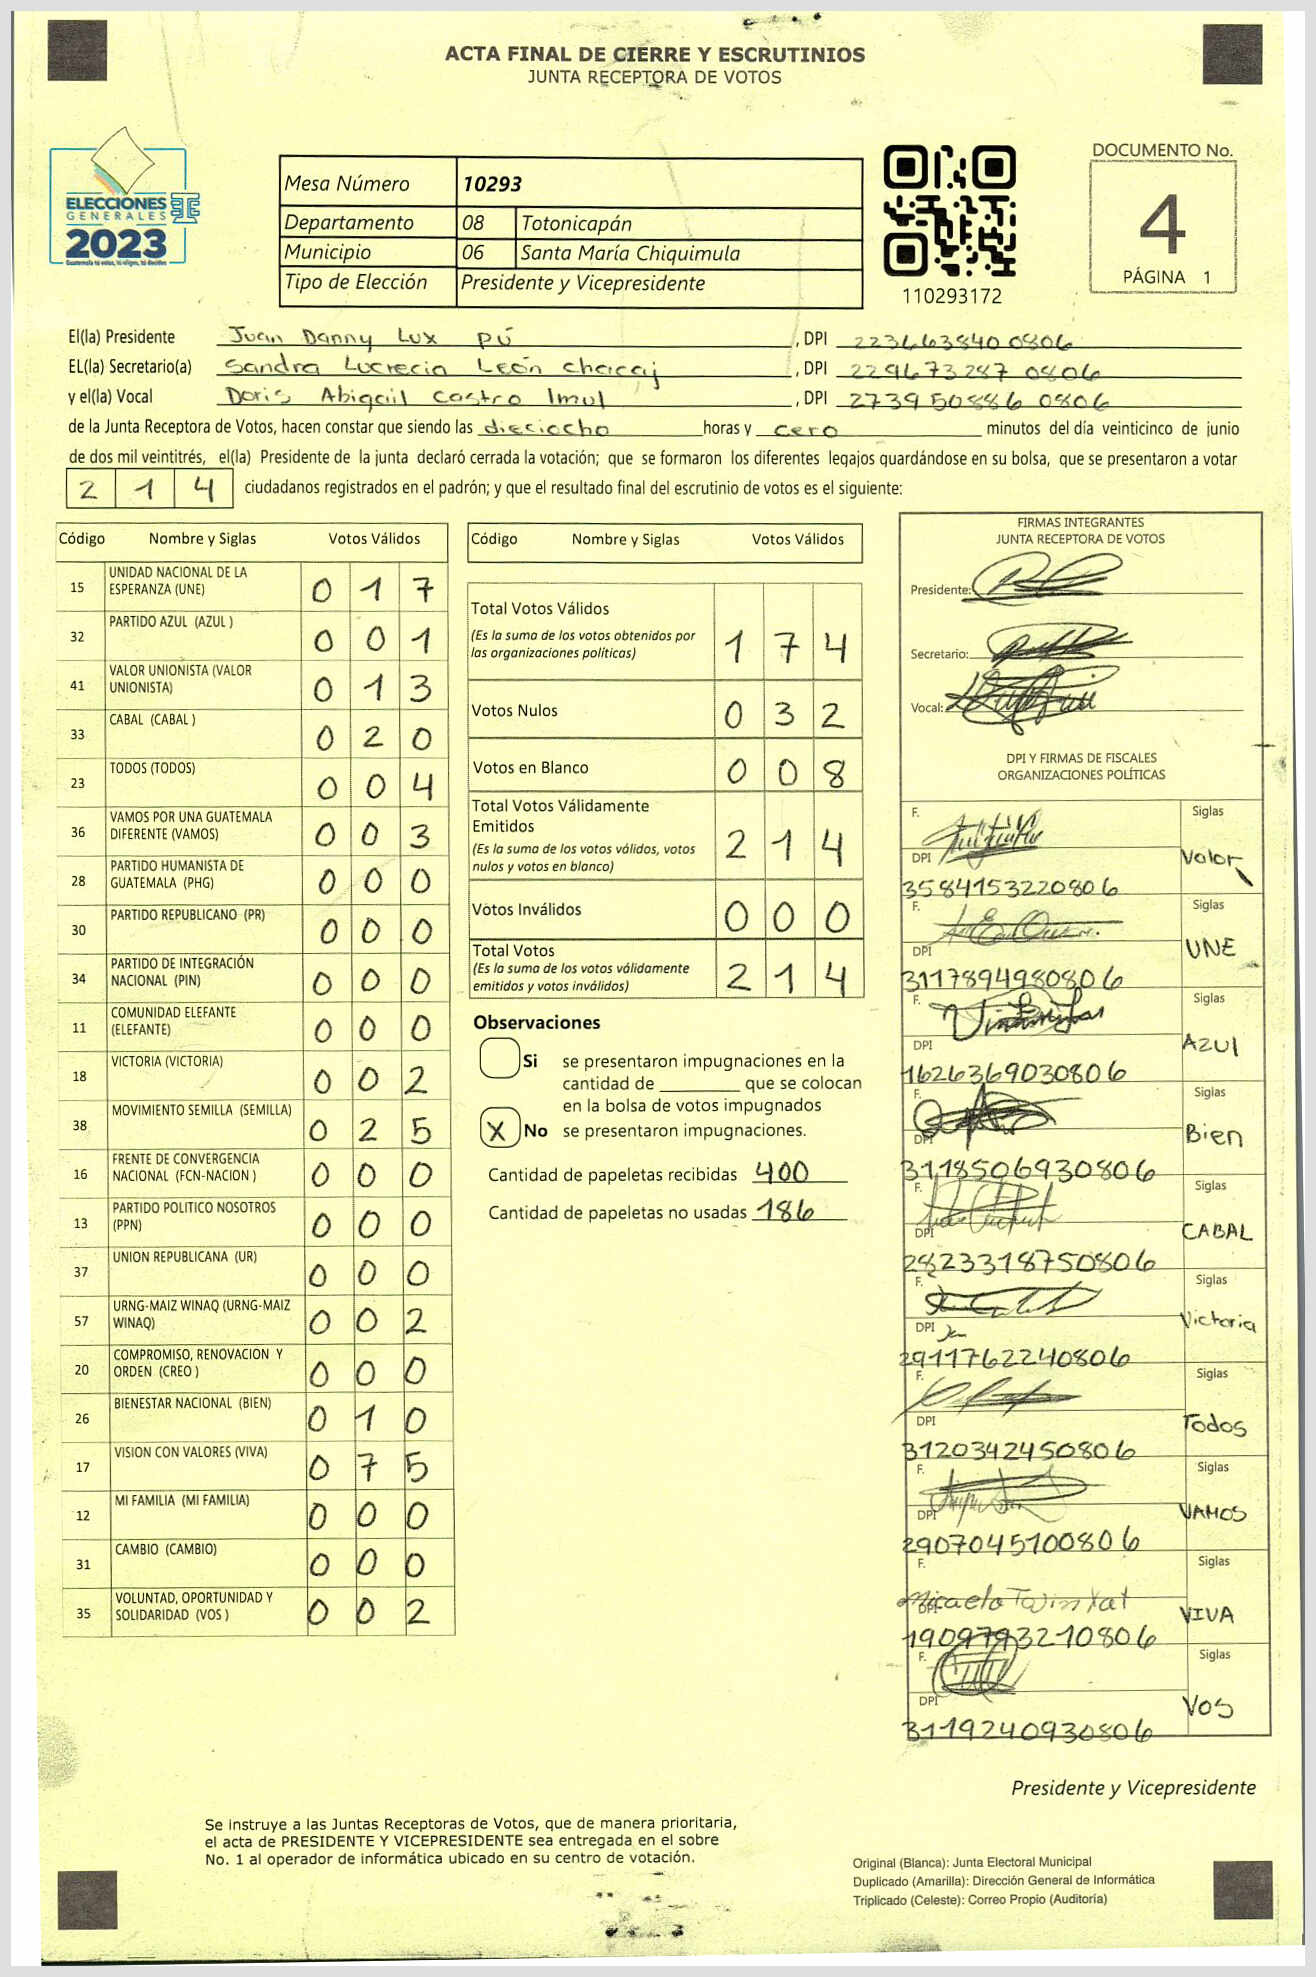 ACTA FINAL DE CIERRE Y ESCRUTINIOS
JUNTA RECEPTORA DE VOTOS
ELECCIONES
GENERALES
2023
Guatemala tú votas, tú eliges, tú decides
Mesa Número 10293
Departamento 08 Totonicapán
Municipio 06 Santa María Chiquimula
Tipo de Elección Presidente y Vicepresidente
110293172
DOCUMENTO No.
4
PÁGINA 1
El(la) Presidente Juan Danny Lux Pú, DPI 223663840 0806
EL(la) Secretario(a) Sandra Lucrecia León Chacaj, DPI 229673287 0806
y el(la) Vocal Doris Abigail Castro Imul, DPI 273950886 0806
de la Junta Receptora de Votos, hacen constar que siendo las dieciocho horas y cero minutos del día veinticinco de junio
de dos mil veintitrés, el(la) Presidente de la junta declaró cerrada la votación; que se formaron los diferentes legajos guardándose en su bolsa, que se presentaron a votar
2 1 4 ciudadanos registrados en el padrón; y que el resultado final del escrutinio de votos es el siguiente:
Código Nombre y Siglas Votos Válidos
15 UNIDAD NACIONAL DE LA
ESPERANZA (UNE) 0 1 7
32 PARTIDO AZUL (AZUL ) 0 0 1
41 VALOR UNIONISTA (VALOR
UNIONISTA) 0 1 3
33 CABAL (CABAL ) 0 2 0
23 TODOS (TODOS) 0 0 4
36 VAMOS POR UNA GUATEMALA
DIFERENTE (VAMOS) 0 0 3
28 PARTIDO HUMANISTA DE
GUATEMALA (PHG) 0 0 0
30 PARTIDO REPUBLICANO (PR) 0 0 0
34 PARTIDO DE INTEGRACIÓN
NACIONAL (PIN) 0 0 0
11 COMUNIDAD ELEFANTE
(ELEFANTE) 0 0 0
18 VICTORIA (VICTORIA) 0 0 2
38 MOVIMIENTO SEMILLA (SEMILLA) 0 2 5
16 FRENTE DE CONVERGENCIA
NACIONAL (FCN-NACION ) 0 0 0
13 PARTIDO POLITICO NOSOTROS
(PPN) 0 0 0
37 UNION REPUBLICANA (UR) 0 0 0
57 URNG-MAIZ WINAQ (URNG-MAIZ
WINAQ) 0 0 2
20 COMPROMISO, RENOVACION Y
ORDEN (CREO ) 0 0 0
26 BIENESTAR NACIONAL (BIEN) 0 1 0
17 VISION CON VALORES (VIVA) 0 7 5
12 MI FAMILIA (MI FAMILIA) 0 0 0
31 CAMBIO (CAMBIO) 0 0 0
35 VOLUNTAD, OPORTUNIDAD Y
SOLIDARIDAD (VOS ) 0 0 2
Código Nombre y Siglas Votos Válidos
Total Votos Válidos
(Es la suma de los votos obtenidos por
las organizaciones políticas) 1 7 4
Votos Nulos 0 3 2
Votos en Blanco 0 0 8
Total Votos Válidamente
Emitidos
(Es la suma de los votos válidos, votos
nulos y votos en blanco) 2 1 4
Votos Inválidos 0 0 0
Total Votos
(Es la suma de los votos válidamente
emitidos y votos inválidos) 2 1 4
Observaciones
Si se presentaron impugnaciones en la
cantidad de que se colocan
en la bolsa de votos impugnados
X No se presentaron impugnaciones.
Cantidad de papeletas recibidas 400
Cantidad de papeletas no usadas 186
FIRMAS INTEGRANTES
JUNTA RECEPTORA DE VOTOS
Presidente:
Secretario:
Vocal:
DPI Y FIRMAS DE FISCALES
ORGANIZACIONES POLÍTICAS
F. Siglas
DPI Valor
3584153220806
F. Siglas
DPI UNE
3117894980806
F. Siglas
DPI AZUL
1626369030806
F. Siglas
DPI Bien
3118506930806
F. Siglas
DPI CABAL
2823318750806
F. Siglas
DPI Victoria
2911762240806
F. Siglas
DPI Todos
3120342450806
F. Siglas
DPI VAMOS
2907045100806
F. Siglas
Micaela
DPI VIVA
1909793210806
F. Siglas
DPI VOS
3119240930806
Presidente y Vicepresidente
Se instruye a las Juntas Receptoras de Votos, que de manera prioritaria,
el acta de PRESIDENTE Y VICEPRESIDENTE sea entregada en el sobre
No. 1 al operador de informática ubicado en su centro de votación.
Original (Blanca): Junta Electoral Municipal
Duplicado (Amarilla): Dirección General de Informática
Triplicado (Celeste): Correo Propio (Auditoría)